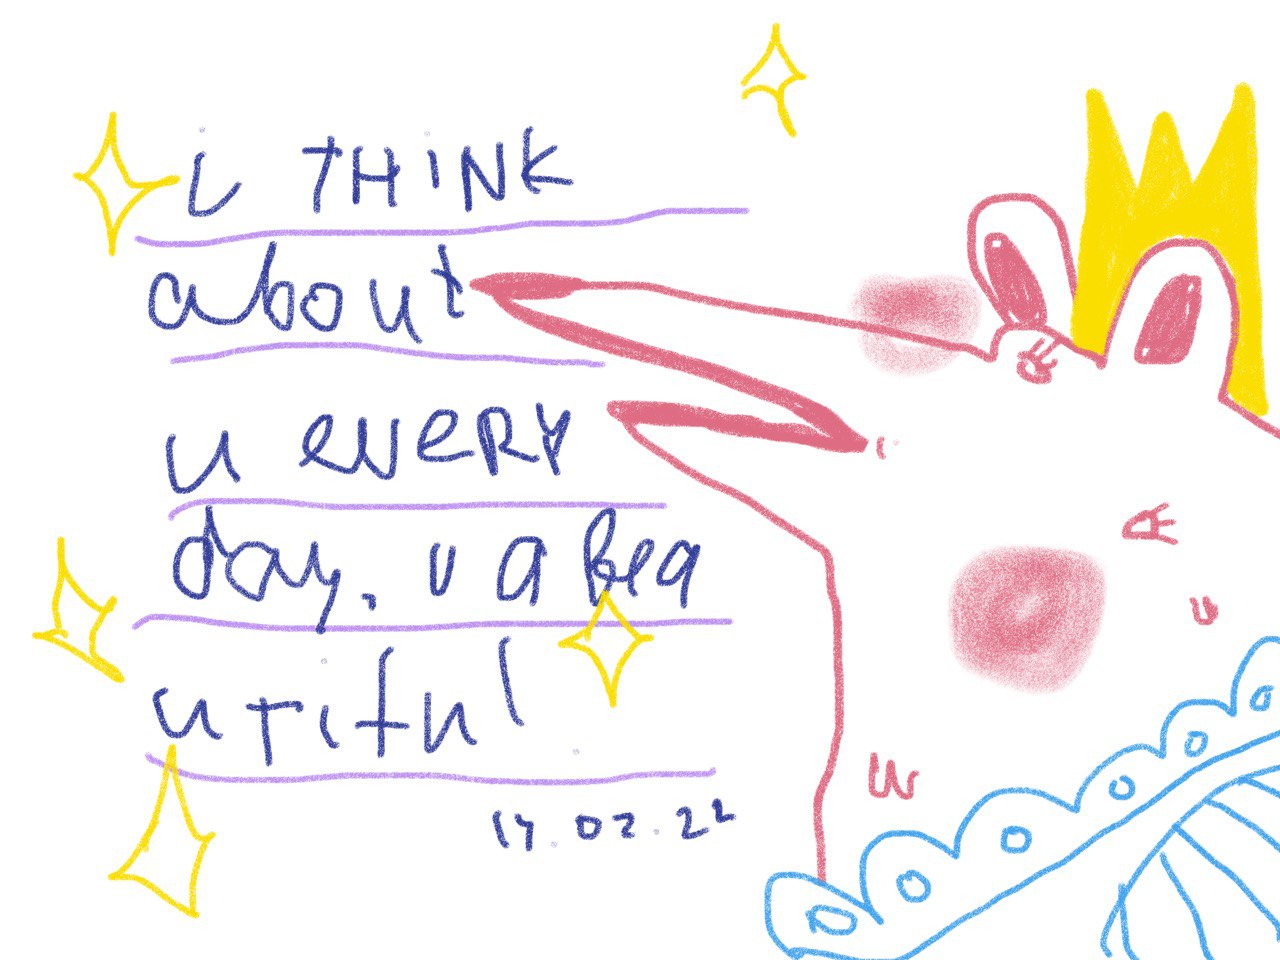 i THINK
about
u every
day. u a bea
utiful
14.02.22